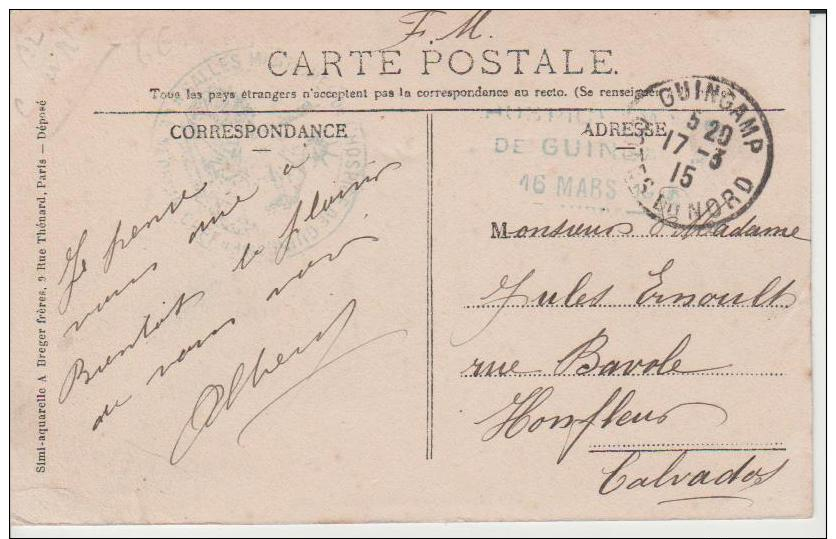 F. M.
CARTE POSTALE.
Tous les pays étrangers n'acceptent pas la correspondance au recto. (Se renseigner
CORRESPONDANCE
ADRESSE
DE GUIN
16 MARS
GUINGAMP
5 20
17 - 3
15
DU NORD
Je pense
vous
à
Bientôt le plaisir
de vous voir
Albert
Monsieur Madame
Jules Ernoult
rue Bavole
Honfleur
Calvados
Simi-aquarelle A Breger frères, 9 Rue Thénard, Paris — Déposé